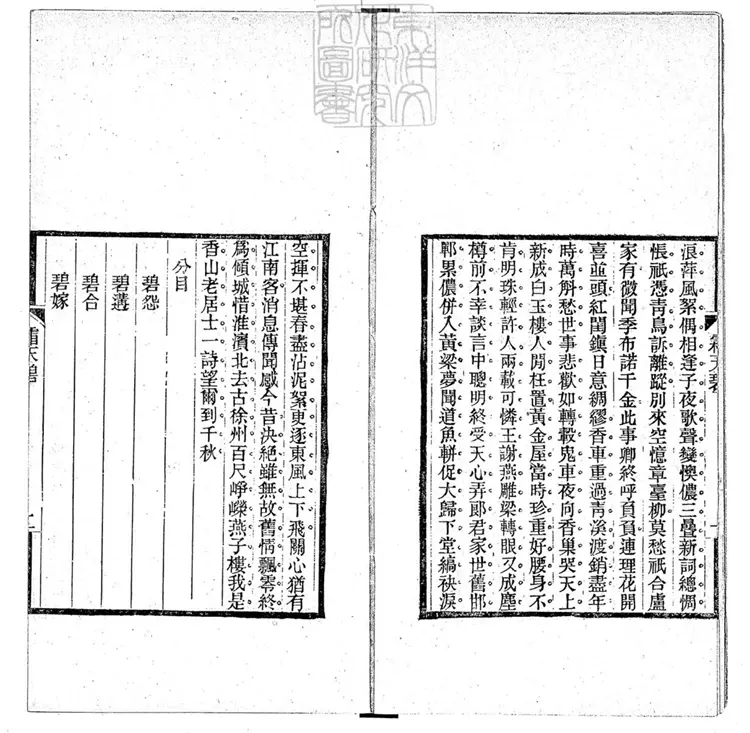 東洋文
化研究
所圖書
浪萍風絮偶相逢子夜歌聲變懊儂三疊新詞總惆
悵祇憑靑鳥訴離蹤別來空憶章臺柳莫愁祇合盧
家有微聞季布諾千金此事卿終呼負負連理花開
喜並頭紅閨鎭日意綢繆香車重過靑溪渡銷盡年
時萬斛愁世事悲歡如轉轂鬼車夜向香巢哭天上
新成白玉樓人閒枉置黃金屋當時珍重好腰身不
肯明珠輕許人兩載可憐王謝燕雕梁轉眼又成塵
樽前不幸談言中聰明終受天心弄郞君家世舊邯
鄲果儂併入黃粱夢聞道魚軿促大歸下堂縞袂淚
霜天碧
一
空揮不堪春盡沾泥絮更逐東風上下飛關心猶有
江南客消息傳聞感今昔決絕雖無故舊情飄零終
爲傾城惜淮濆北去古徐州百尺崢嶸燕子樓我是
香山老居士一詩望爾到千秋
分目
碧怨
碧遘
碧合
碧嫁
霜天碧